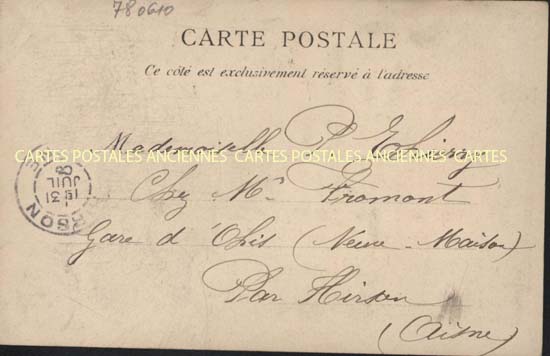 780610
CARTE POSTALE
Ce côté est exclusivement réservé à l'adresse
Mademoiselle P. Thierry
CARTES POSTALES ANCIENNES CARTES POSTALES ANCIENNES CARTES POSTALES ANCIENNES
Chez Mr Fromont
Gare d'Ohis (Neuve-Maison)
Par Hirson
(Aisne)
JUIL